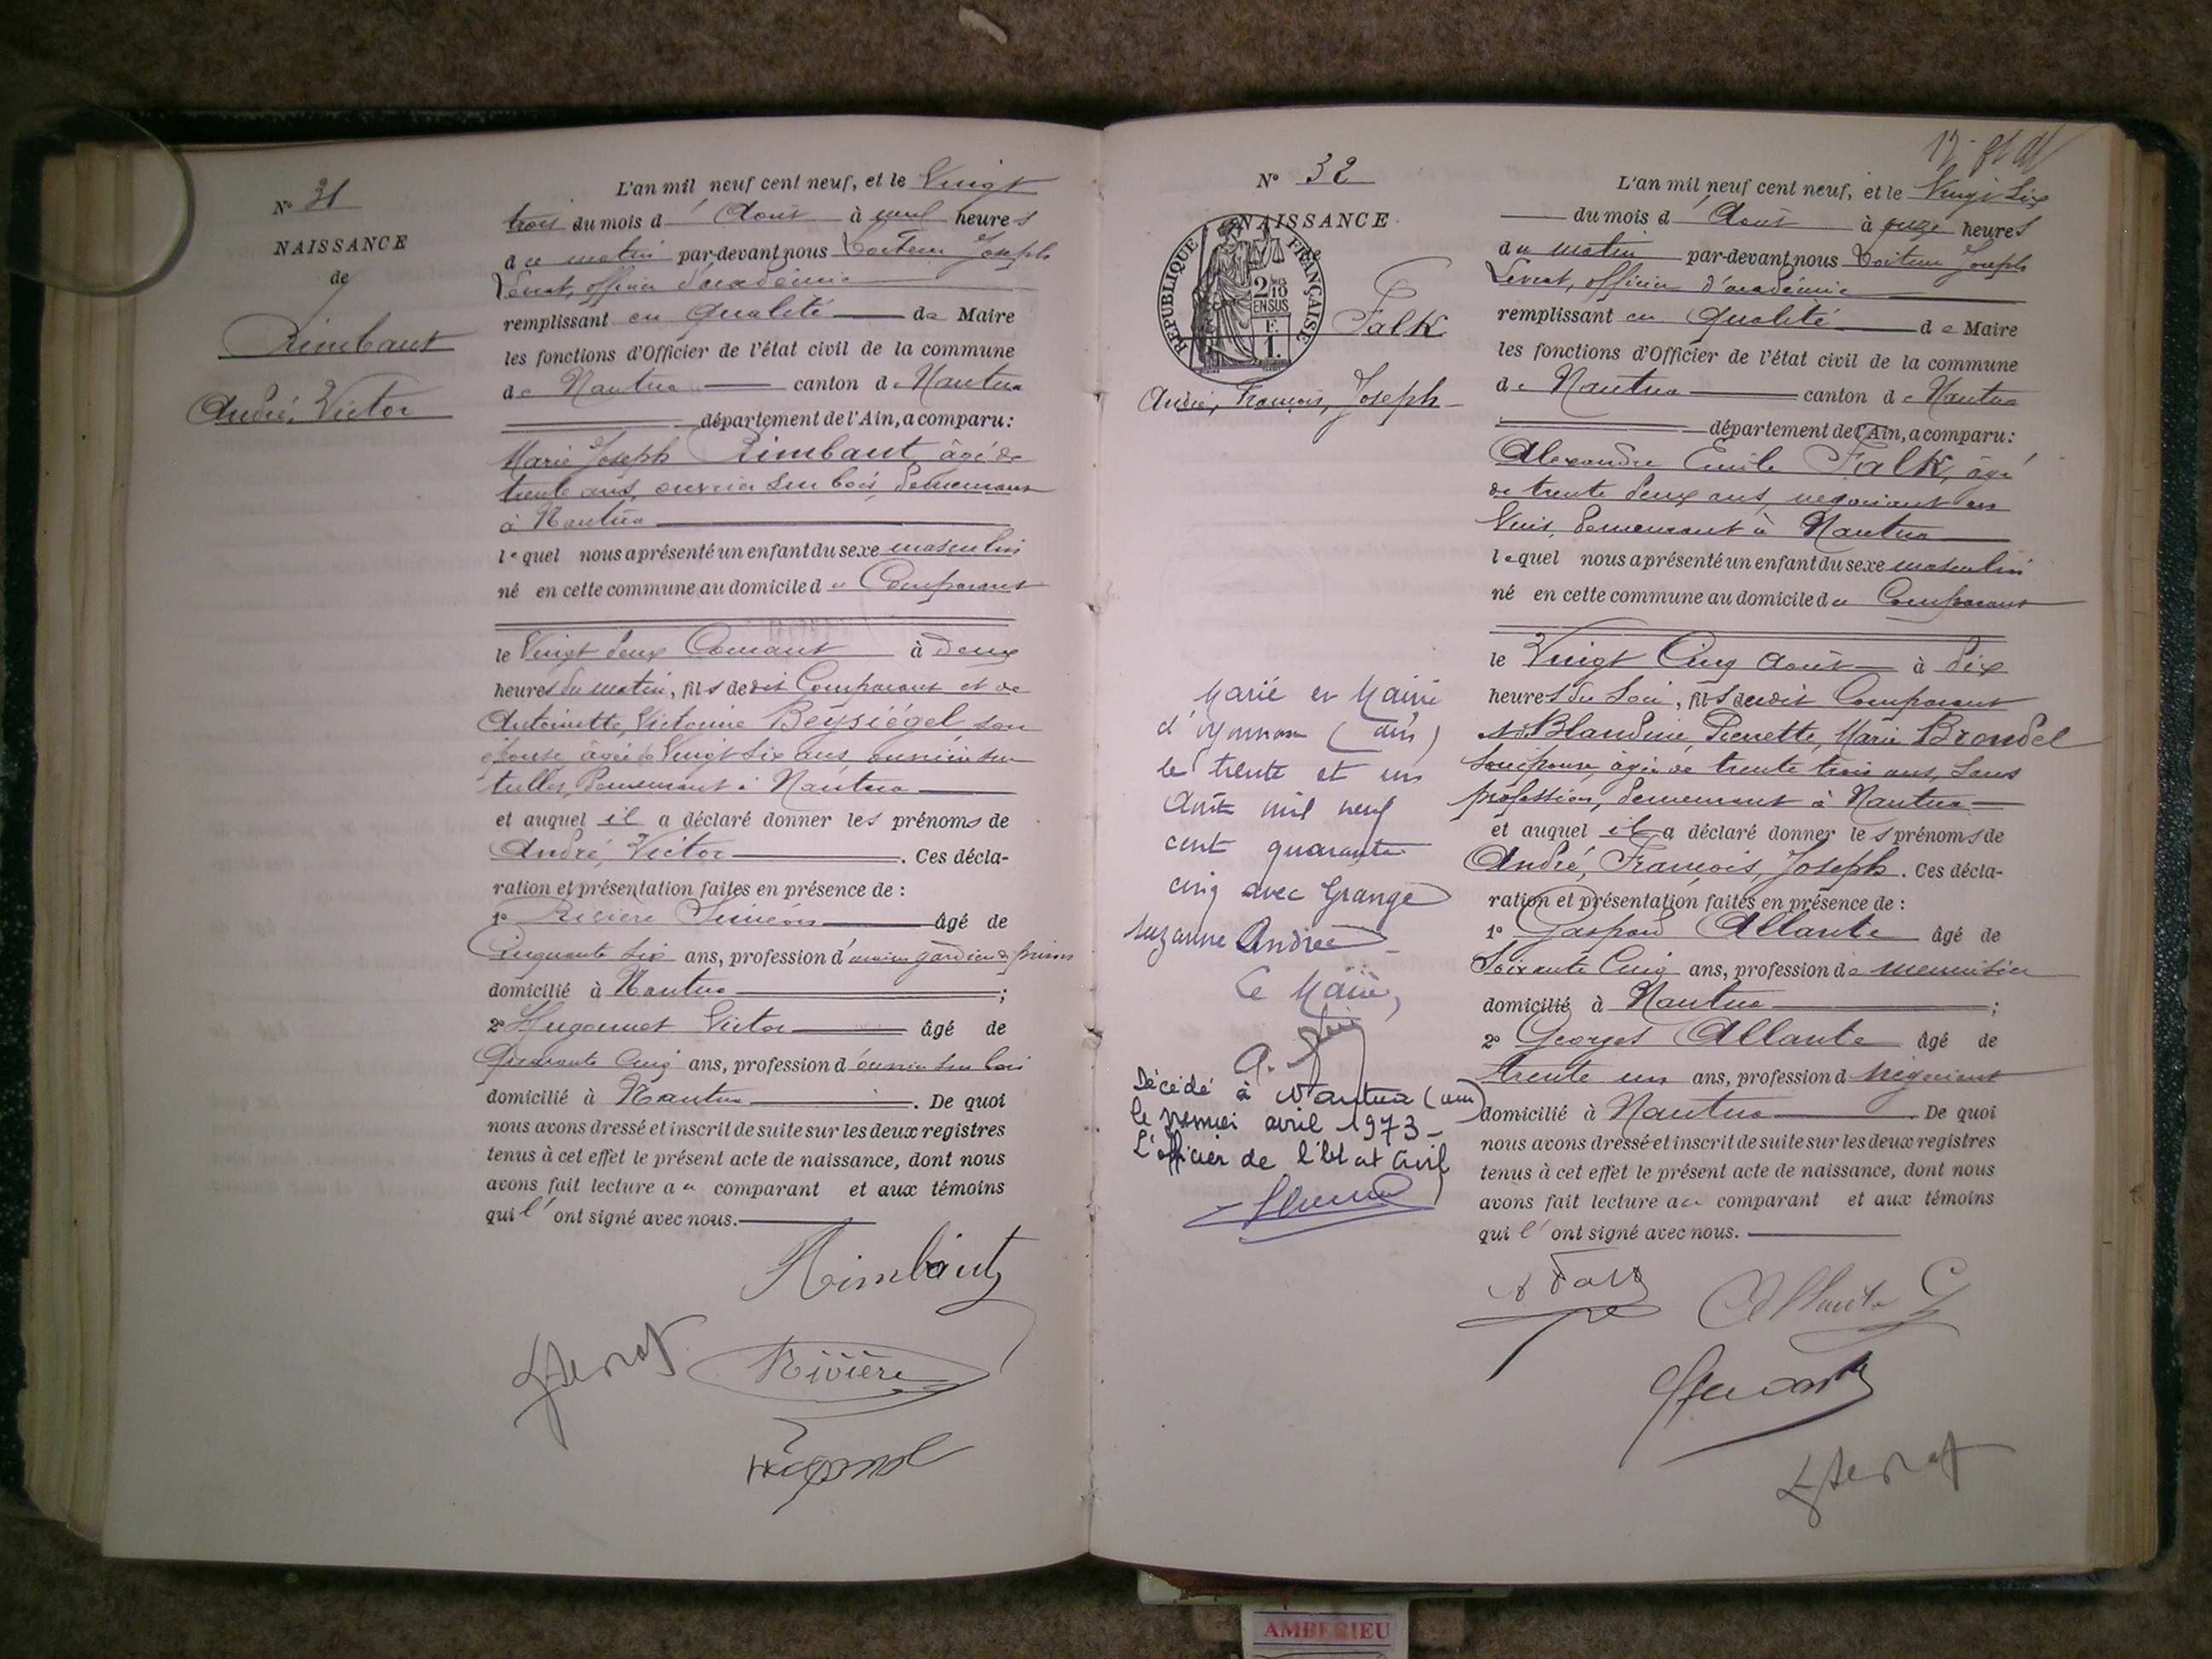 N° 31
NAISSANCE
de
Rimbaut
André, Victor
L'an mil neuf cent neuf, et le Vingt
trois du mois d' Août à neuf heures
du matin par-devant nous Docteur Joseph
Levrat, officier d'académie
remplissant en qualité de Maire
les fonctions d'Officier de l'état civil de la commune
de Nantua canton de Nantua
département de l'Ain, a comparu :
Marie Joseph Rimbaut, âgé de
trente ans, ouvrier sur bois, demeurant
à Nantua
lequel nous a présenté un enfant du sexe masculin
né en cette commune au domicile du Comparant
le Vingt deux Courant à deux
heures du matin, fils de dit Comparant et de
Antoinette, Victorine Beysiégel son
épouse, âgée de Vingt six ans, ouvrière sur
tulles, demeurant à Nantua
et auquel il a déclaré donner les prénoms de
André, Victor . Ces décla-
ration et présentation faites en présence de :
1° Rivière Siméon âgé de
Cinquante six ans, profession d'ancien gardien de prison
domicilié à Nantua ;
2° Hugonnet Victor âgé de
Quarante Cinq ans, profession d'ouvrier sur bois
domicilié à Nantua . De quoi
nous avons dressé et inscrit de suite sur les deux registres
tenus à cet effet le présent acte de naissance, dont nous
avons fait lecture au comparant et aux témoins
qui l' ont signé avec nous.
Rimbaut
Rivière
N° 32
NAISSANCE
RÉPUBLIQUE FRANÇAISE
2/10 EN SUS
Falk
André, François, Joseph
Marié en Mairie
d'oyonnax (ain)
le trente et un
Août mil neuf
cent quarante
cinq avec Grange
suzanne Andrée
Le Maire,
Décédé à Nantua (ain)
le premier avril 1973 -
L'officier de l'Etat Civil
L'an mil neuf cent neuf, et le Vingt Six
du mois d' Août à onze heures
du matin par-devant nous Docteur Joseph
Levrat, officier d'académie
remplissant en qualité de Maire
les fonctions d'Officier de l'état civil de la commune
de Nantua canton de Nantua
département de l'Ain, a comparu :
Alexandre Emile Falk, âgé
de trente deux ans, négociant en
Vins, demeurant à Nantua
lequel nous a présenté un enfant du sexe masculin
né en cette commune au domicile du Comparant
le Vingt Cinq Août à dix
heures du soir, fils dudit Comparant
et de Blandine, Pierrette, Marie Brondel
son épouse, âgée de trente trois ans, sans
profession, demeurant à Nantua
et auquel il a déclaré donner les prénoms de
André, François, Joseph . Ces décla-
ration et présentation faites en présence de :
1° Gaspard Allante âgé de
Soixante Cinq ans, profession de menuisier
domicilié à Nantua ;
2° Georges Allante âgé de
trente un ans, profession d négociant
domicilié à Nantua . De quoi
nous avons dressé et inscrit de suite sur les deux registres
tenus à cet effet le présent acte de naissance, dont nous
avons fait lecture au comparant et aux témoins
qui l' ont signé avec nous.
A Falk
Allante G
AMBERIEU